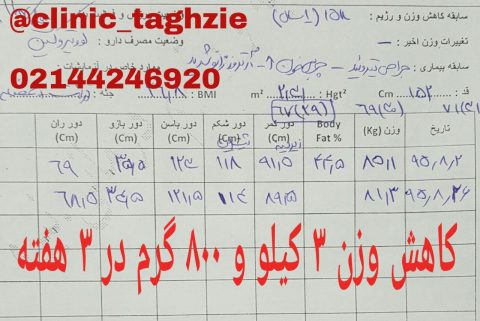 @clinic_taghzie
02144246920
سابقه کاهش وزن و رژیم :
تغییرات وزن اخیر :
وضعیت مصرف دارو :
سابقه بیماری : جراحی تیروئید
موارد خاص در آزمایشات :
قد : ۱۵۲ Cm Hgt² : ۲/۳۱ m² BMI : جثه :
۷۱(۳۱) ۶۹(۳۰) ۶۷(۲۹)
تاریخ وزن (Kg) Body Fat % دور کمر (Cm) دور شکم (Cm) دور باسن (Cm) دور بازو (Cm) دور ران (Cm)
۹۵,۸,۲ ۸۵/۱ ۴۴,۵ ۹۱,۵ ۱۱۸ ۱۲۴ ۳۵,۵ ۶۹
۹۵,۸,۲۶ ۸۱,۳ ۸۹,۵ ۱۱۴ ۱۲۱,۵ ۳۴,۵ ۶۸,۵
کاهش وزن ۳ کیلو و ۸۰۰ گرم در ۳ هفته